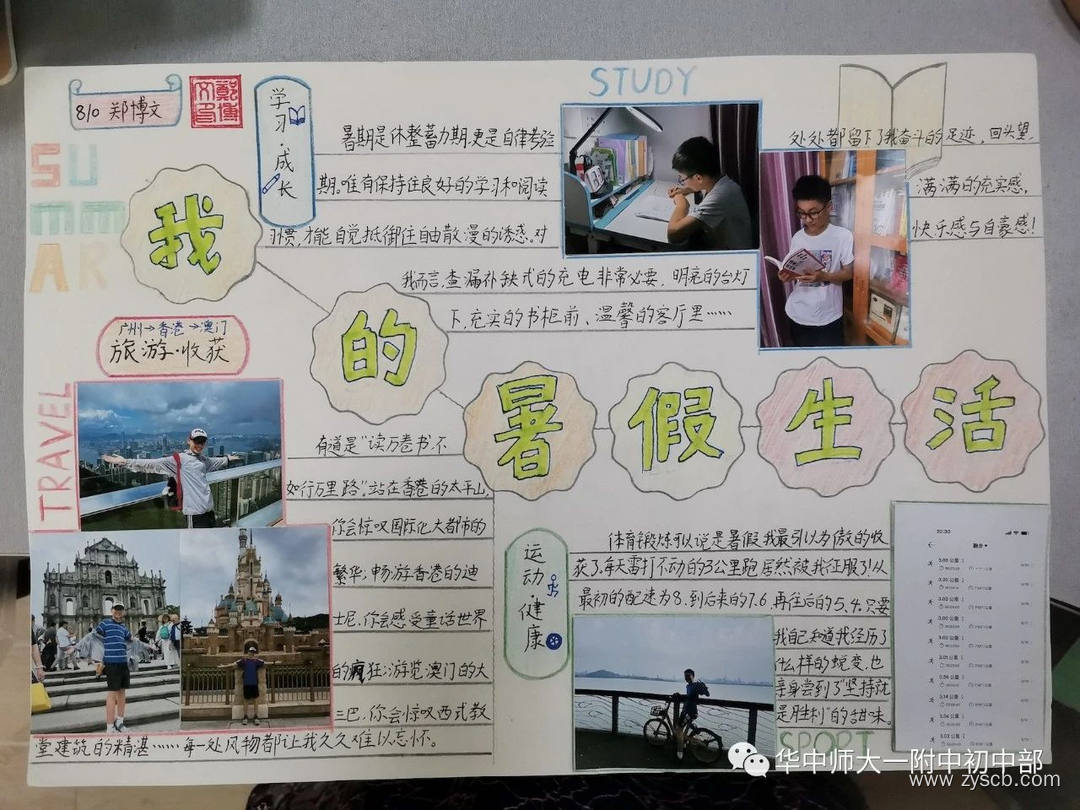 810 郑博文
SUMMAR
STUDY
学习·成长
暑期是休整蓄力期,更是自律考验
期。唯有保持住良好的学习和阅读
习惯,才能自觉抵御住自由散漫的诱惑。对
我而言,查漏补缺式的充电非常必要。明亮的台灯
下,充实的书柜前、温馨的客厅里……
处处都留下了我奋斗的足迹,回头望,
满满的充实感,
快乐感与自豪感!
我的暑假生活
广州→香港→澳门
旅游·收获
TRAVEL
有道是“读万卷书不
如行万里路”,站在香港的太平山,
你会惊叹国际化大都市的
繁华;畅游香港的迪
士尼,你会感受童话世界
的疯狂;游览澳门的大
三巴,你会惊叹西式教
堂建筑的精湛……每一处风物都让我久久难以忘怀。
运动·健康
体育锻炼可以说是暑假我最引以为傲的收
获了,每天雷打不动的3公里跑居然被我征服了!从
最初的配速为8,到后来的7.6,再往后的5.4,只要
我自己知道我经历了
什么样的蜕变,也
亲身尝到了“坚持就
是胜利”的甜味。
SPORT
华中师大一附中初中部
www.zyscb.com